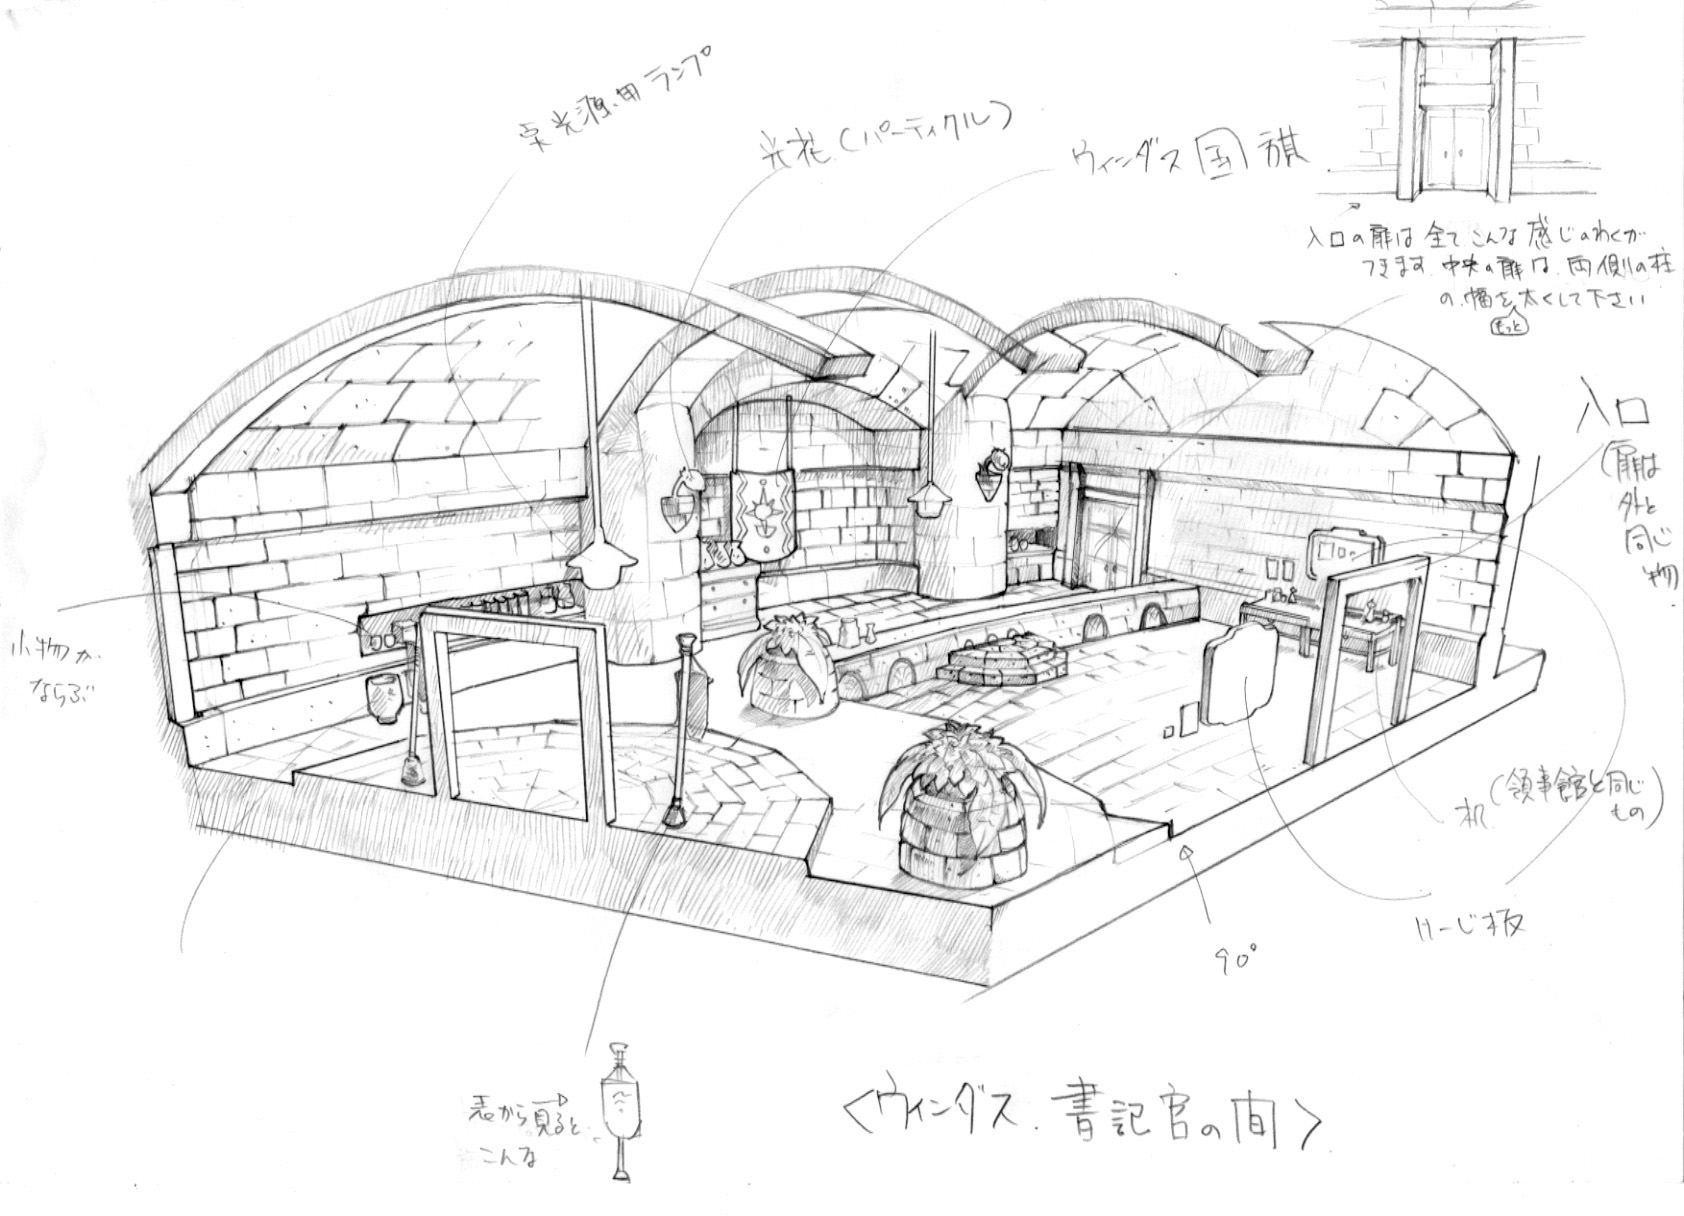 光源用ランプ
光花(パーティクル)
ウィンダス国旗
入口の扉は全てこんな感じのわくが
つきます.中央の扉は.両側の柱
の.幅を太くして下さい
もっと
入口
(扉は
外と
同じ
物.
小物が
ならぶ
机(領事館と同じ
もの)
けーじ板
90°
表から見ると
こんな
<ウィンダス.書記官の間>